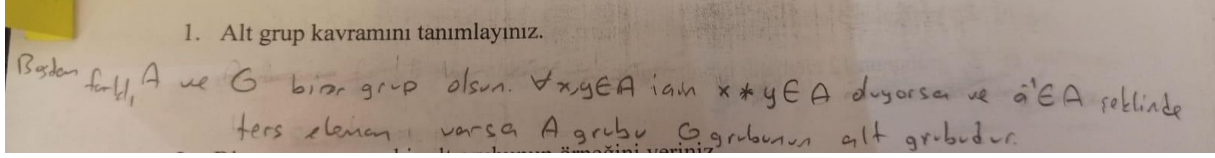 1. Alt grup kavramını tanımlayınız.
Boştan farklı, A ve G birer grup olsun. ∀x,y∈A için x*y∈A oluyorsa ve a⁻¹∈A şeklinde
ters elemanı varsa A grubu G grubunun alt grubudur.
örneğini veriniz.